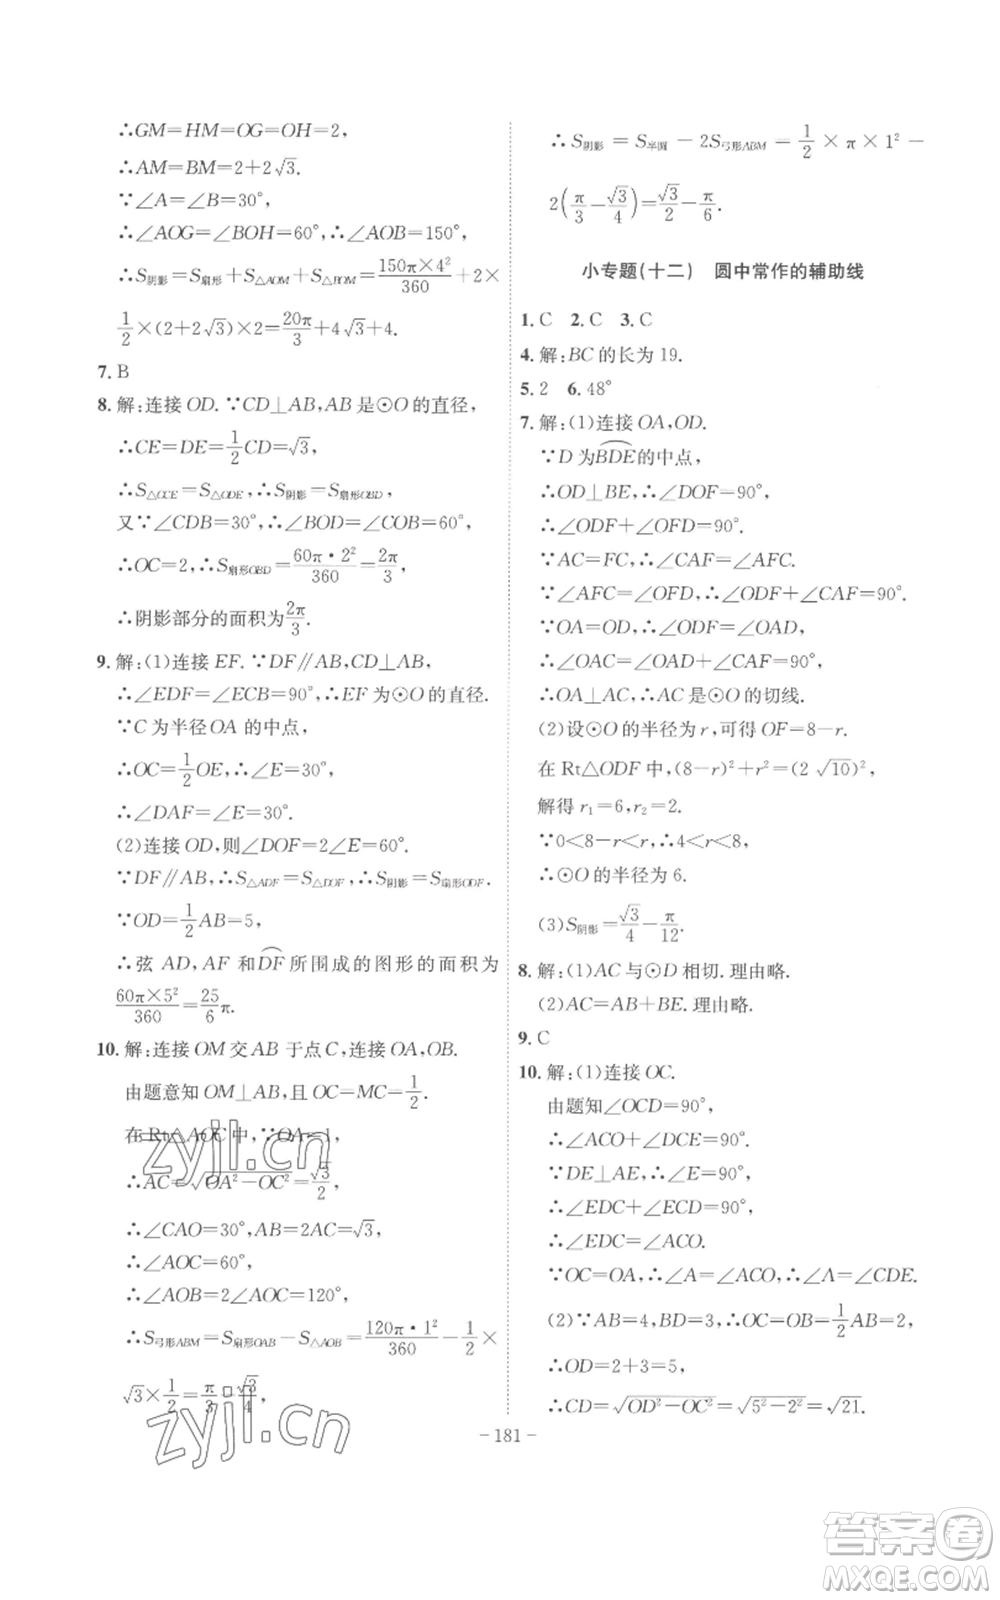 ∴GM=HM=OG=OH=2,
∴AM=BM=2+2√3.
∵∠A=∠B=30°,
∴∠AOG=∠BOH=60°,∴∠AOB=150°,
∴S阴影=S扇形+S△AOM+S△BOM=150π×4²/360+2×
1/2×(2+2√3)×2=20π/3+4√3+4.
7. B
8. 解:连接OD.∵CD⊥AB,AB是⊙O的直径,
∴CE=DE=1/2CD=√3,
∴S△OCE=S△ODE,∴S阴影=S扇形OBD,
又∵∠CDB=30°,∴∠BOD=∠COB=60°,
∴OC=2,∴S扇形OBD=60π·2²/360=2π/3,
∴阴影部分的面积为2π/3.
9. 解:(1)连接EF.∵DF∥AB,CD⊥AB,
∴∠EDF=∠ECB=90°,∴EF为⊙O的直径.
∵C为半径OA的中点,
∴OC=1/2OE,∴∠E=30°,
∴∠DAF=∠E=30°.
(2)连接OD,则∠DOF=2∠E=60°.
∵DF∥AB,∴S△ADF=S△DOF,∴S阴影=S扇形ODF.
∵OD=1/2AB=5,
∴弦AD,AF和DF⌒所围成的图形的面积为
60π×5²/360=25/6π.
10. 解:连接OM交AB于点C,连接OA,OB.
由题意知OM⊥AB,且OC=MC=1/2.
在Rt△AOC中,∵OA=1,
∴AC=√(OA²-OC²)=√3/2,
∴∠CAO=30°,AB=2AC=√3,
∴∠AOC=60°,
∴∠AOB=2∠AOC=120°,
∴S弓形ABM=S扇形OAB-S△AOB=120π·1²/360-1/2×
√3×1/2=π/3-√3/4,
∴S阴影=S半圆-2S弓形ABM=1/2×π×1²-
2(π/3-√3/4)=√3/2-π/6.
小专题(十二) 圆中常作的辅助线
1. C 2. C 3. C
4. 解:BC的长为19.
5. 2 6. 48°
7. 解:(1)连接OA,OD.
∵D为BDE⌒的中点,
∴OD⊥BE,∴∠DOF=90°,
∴∠ODF+∠OFD=90°.
∵AC=FC,∴∠CAF=∠AFC.
∵∠AFC=∠OFD,∴∠ODF+∠CAF=90°.
∵OA=OD,∴∠ODF=∠OAD,
∴∠OAC=∠OAD+∠CAF=90°,
∴OA⊥AC,∴AC是⊙O的切线.
(2)设⊙O的半径为r,可得OF=8-r.
在Rt△ODF中,(8-r)²+r²=(2√10)²,
解得r₁=6,r₂=2.
∵0<8-r<r,∴4<r<8,
∴⊙O的半径为6.
(3)S阴影=√3/4-π/12.
8. 解:(1)AC与⊙D相切.理由略.
(2)AC=AB+BE.理由略.
9. C
10. 解:(1)连接OC.
由题知∠OCD=90°,
∴∠ACO+∠DCE=90°.
∵DE⊥AE,∴∠E=90°,
∴∠EDC+∠ECD=90°,
∴∠EDC=∠ACO.
∵OC=OA,∴∠A=∠ACO,∴∠A=∠CDE.
(2)∵AB=4,BD=3,∴OC=OB=1/2AB=2,
∴OD=2+3=5,
∴CD=√(OD²-OC²)=√(5²-2²)=√21.
- 181 -
zyjl.cn
zyjl.cn
答案卷
MXQE.COM